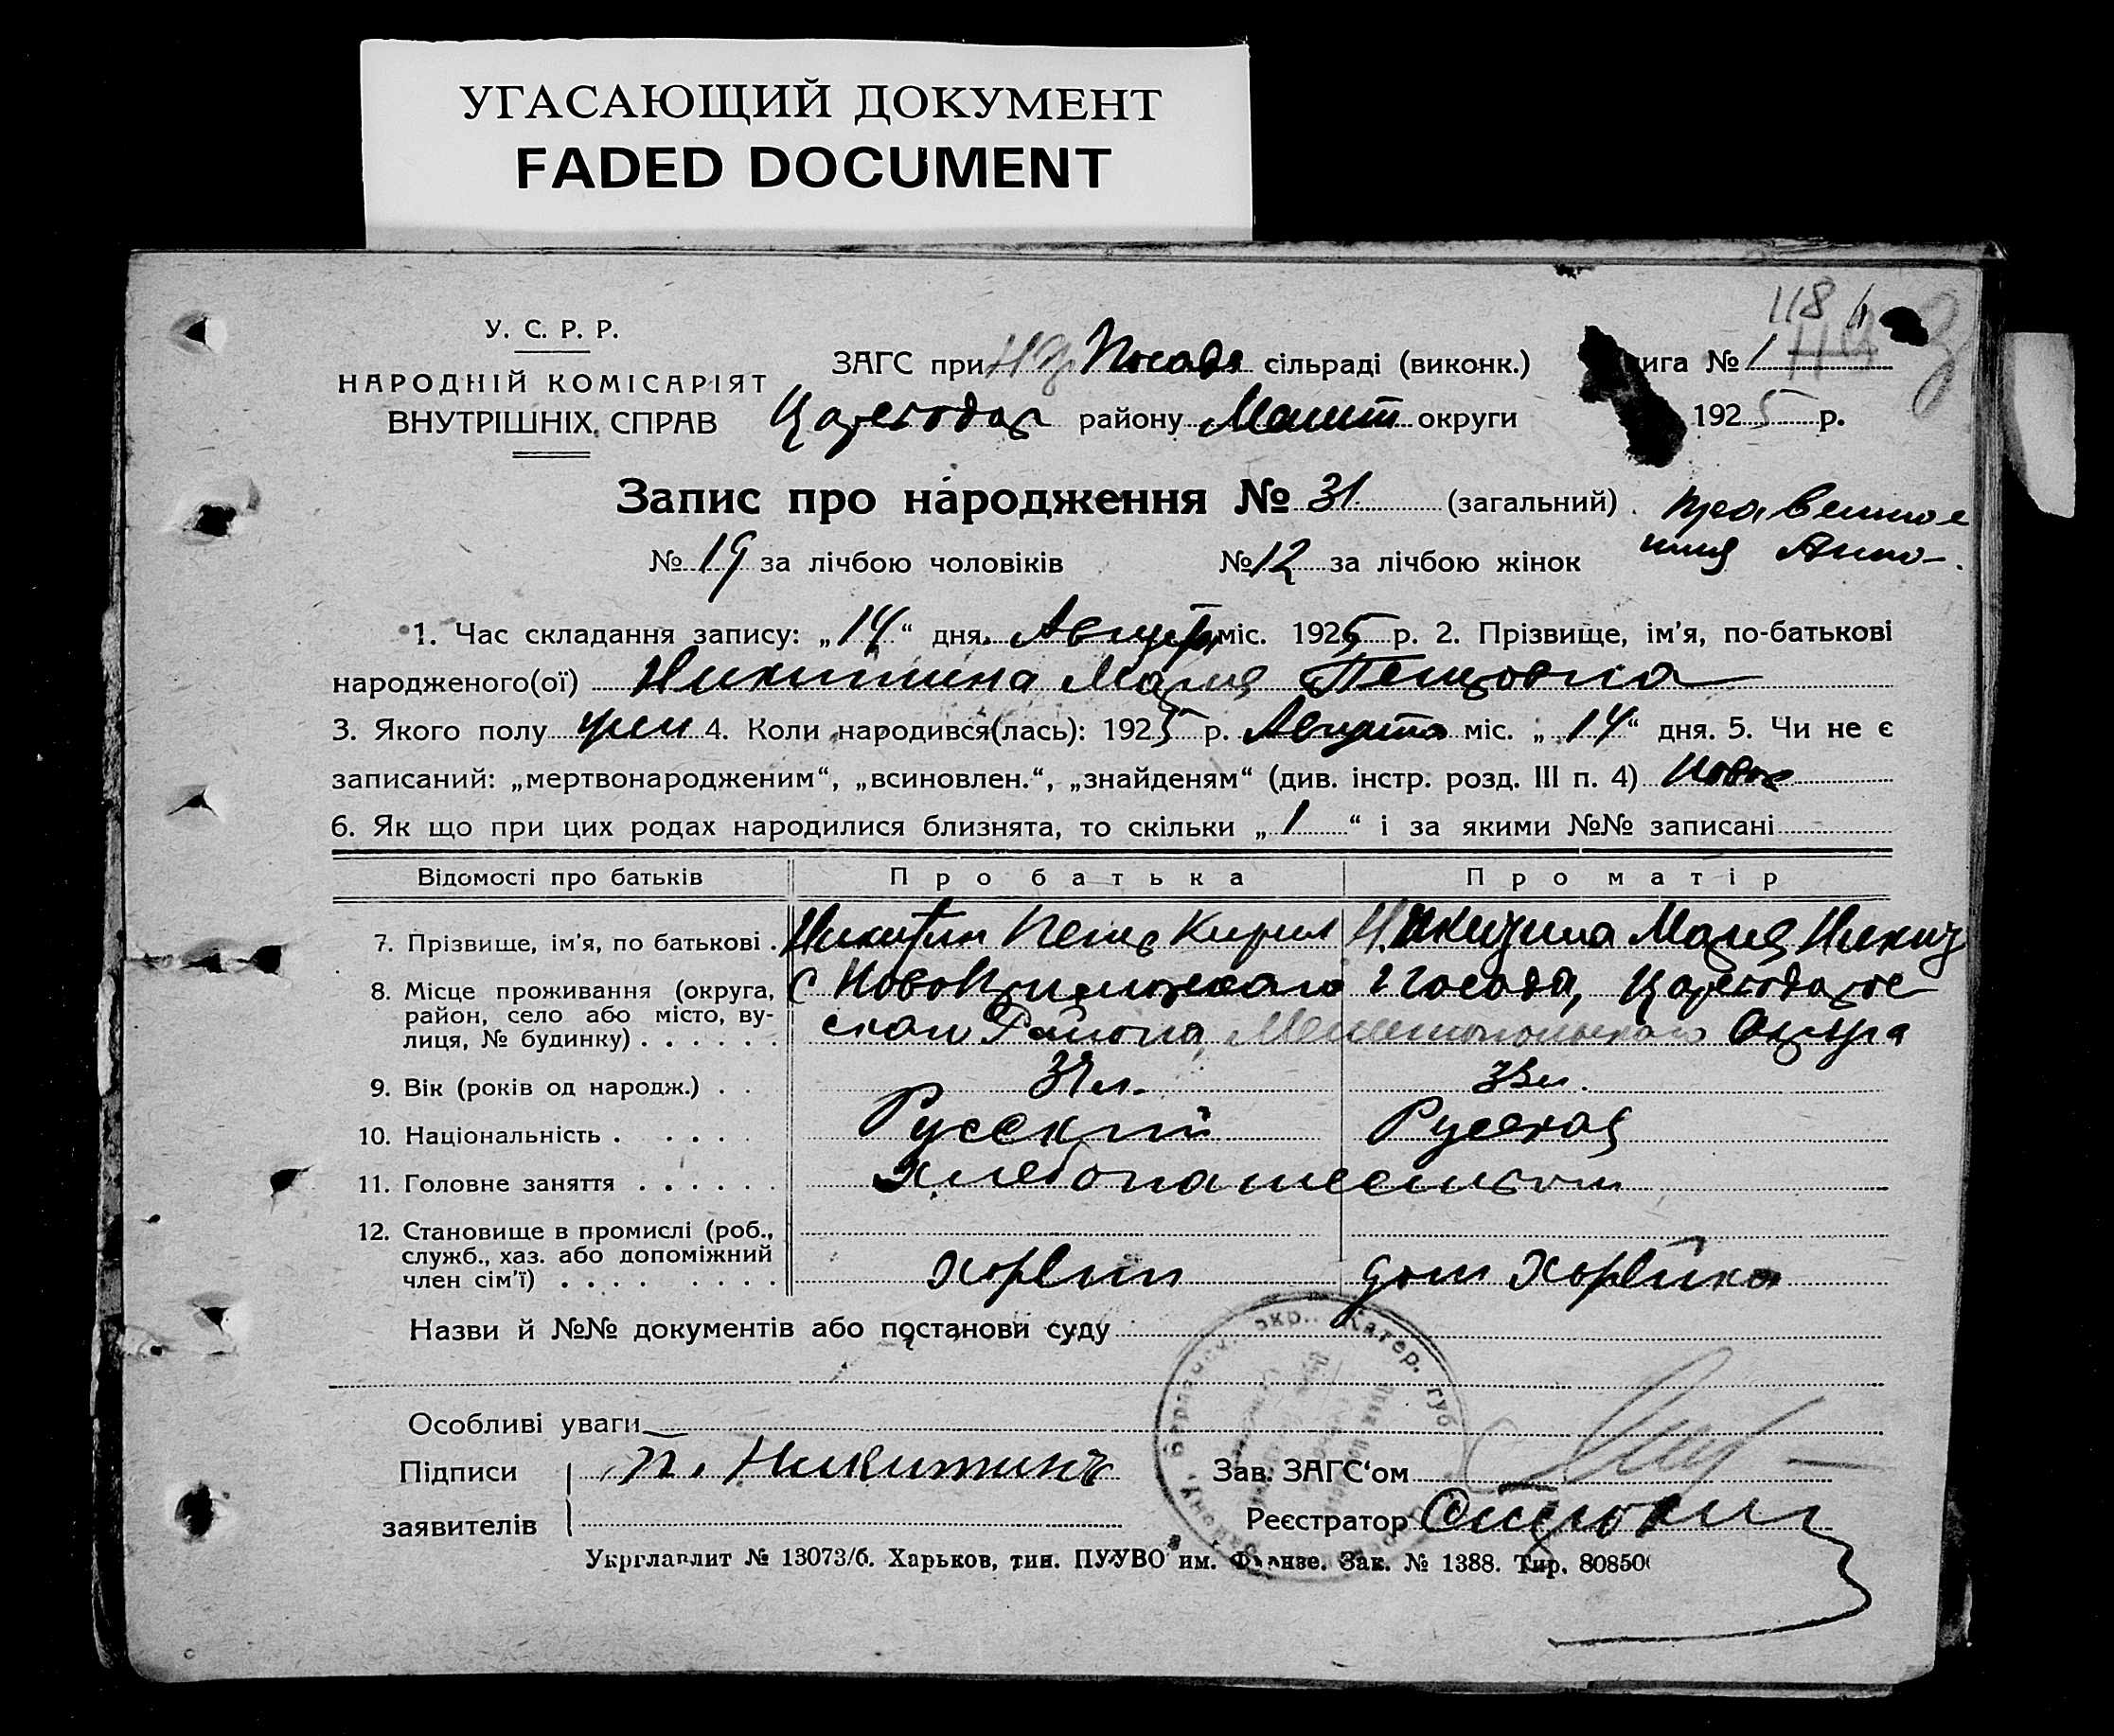 УГАСАЮЩИЙ ДОКУМЕНТ
FADED DOCUMENT
118
У. С. Р. Р.
НАРОДНІЙ КОМІСАРІЯТ
ВНУТРІШНІХ СПРАВ
ЗАГС при Посаде сільраді (виконк.) нига № 1
района Мелит округи 1925 р.
Запис про народження № 31 (загальний).
№ 19 за лічбою чоловіків № 12 за лічбою жінок
имя Анна
1. Час складання запису: „14“ дня Август міс. 1925 р. 2. Прізвище, ім'я, по-батькові
народженого(ої) Никитина Мария Петровна
3. Якого полу жен 4. Коли народився(лась): 1925 р. Августа міс. „14“ дня. 5. Чи не є
записаний: „мертвонародженим“, „всиновлен.“, „знайденям“ (див. інстр. розд. III п. 4)
6. Як що при цих родах народилися близнята, то скільки „1“ і за якими №№ записані
Відомості про батьків Про батька Про матір
7. Прізвище, ім'я, по батькові . Никитин Петр Кирил Никитина Мария Никит
8. Місце проживання (округа,
район, село або місто, ву-
лиця, № будинку) . . . . . .
Посада,
скаго Района, Мелитопольского Округа
9. Вік (років од народж.) . .
10. Національність . . . . Русский Русская
11. Головне заняття . . . . . . Хлебопашество
12. Становище в промислі (роб.,
служб., хаз. або допоміжний
член сім'ї) . . . . . . . .
хозяин дом хозяйка
Назви й №№ документів або постанови суду
Особливі уваги
Підписи П. Никитинъ Зав. ЗАГС‘ом
заявителів Реєстратор
окр. Катер. губ
Укрглавлит № 13073/б. Харьков, тип. ПУУВО им. Фрунзе. Зак. № 1388. Тир. 80850